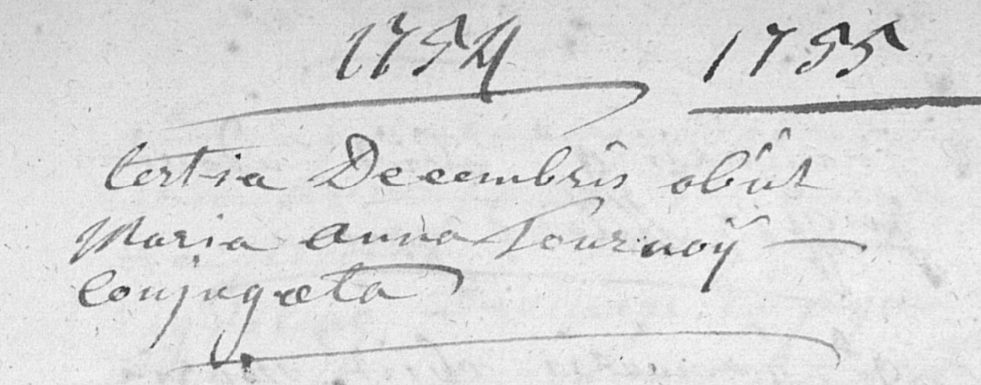 1754 1755
tertia Decembris obiit
Maria Anna Tournoÿ
Conjugata